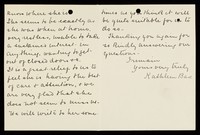 know where she is.
She seems to be exactly as
she was when at home,
very restless, unable to take
a sustained interest in
anything, wanting to get
out of doors down so.
It is a great relief to us to
feel she is having the best
of care & attention, & we
are very glad that she
does not seem to miss us.
We will write to her some
times as you think it will
be quite suitable for us to
do so.
Thanking you again for
so kindly answering our
questions.
I remain
Yours very truly
Kathleen